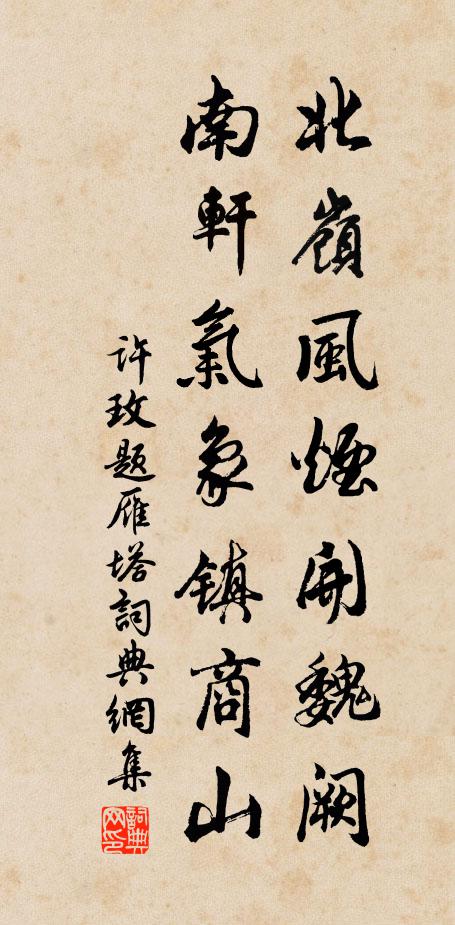 北嶺風煙開魏闕
南軒氣象鎮商山
许玫题雁塔詞典網集
詞典
网印